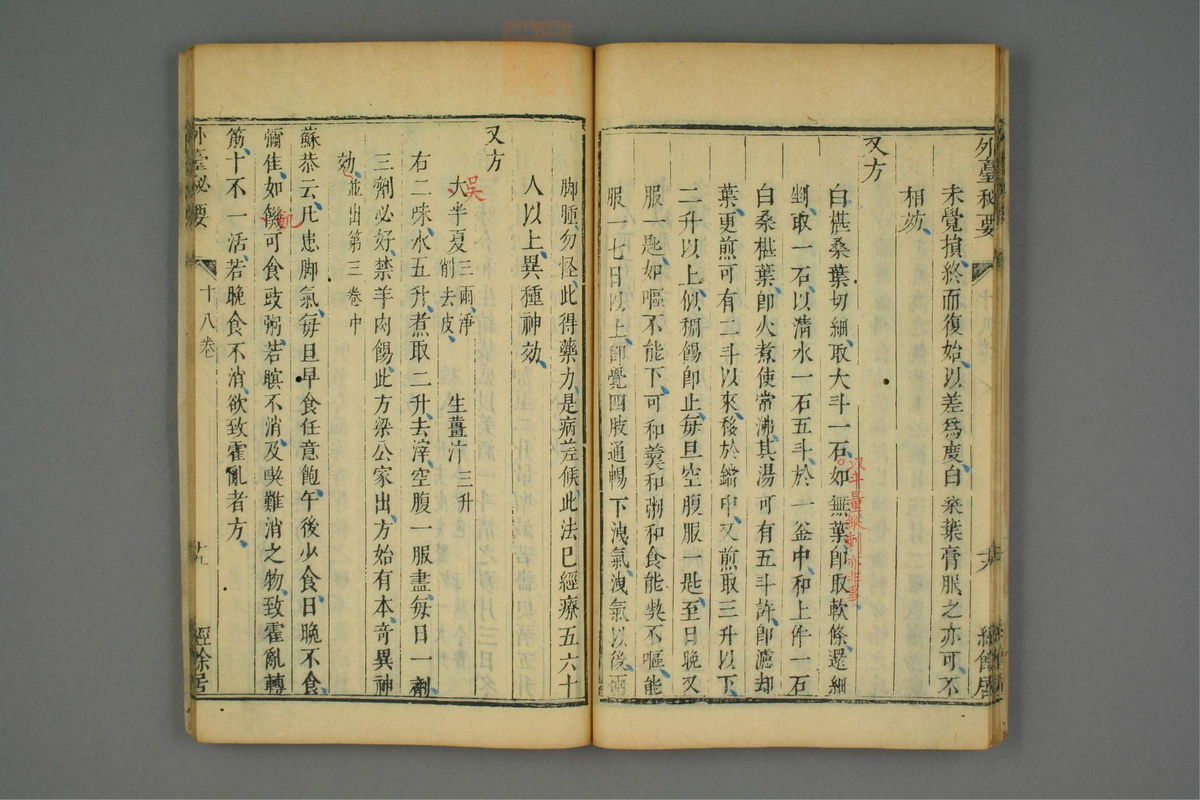 外臺秘要
十八卷
六
經餘居
未覺損終而復始以差爲度白桑葉膏服之亦可不
相妨
又方
白椹桑葉切細取大斗一石如無葉卽取軟條還細
剉取一石以清水一石五斗於一釜中和上件一石
白桑椹葉卽火煮使常沸其湯可有五斗許卽濾却
葉更煎可有二斗以來移於鐺中又煎取三升以下
二升以上似稠餳卽止每旦空腹服一匙至日晚又
服一匙如嘔不能下可和羹和粥和食能喫不嘔能
服一七日以上卽覺四肢通暢下洩氣洩氣以後兩
脚腫勿怪此得藥力是病差候此法已經療五六十
人以上異種神効
又方
吳
大半夏三兩淨削去皮 生薑汁三升
右二味水五升煮取二升去滓空腹一服盡每日一劑
三劑必好禁羊肉餳此方梁公家出方始有本奇異神
効並出第三卷中
蘇恭云凡患脚氣每旦早食任意飽午後少食日晚不食
彌佳如饑可食豉粥若瞑不消及喫難消之物致霍亂轉
飢
筋十不一活若晚食不消欲致霍亂者方
外臺秘要
十八卷
十九
經餘居